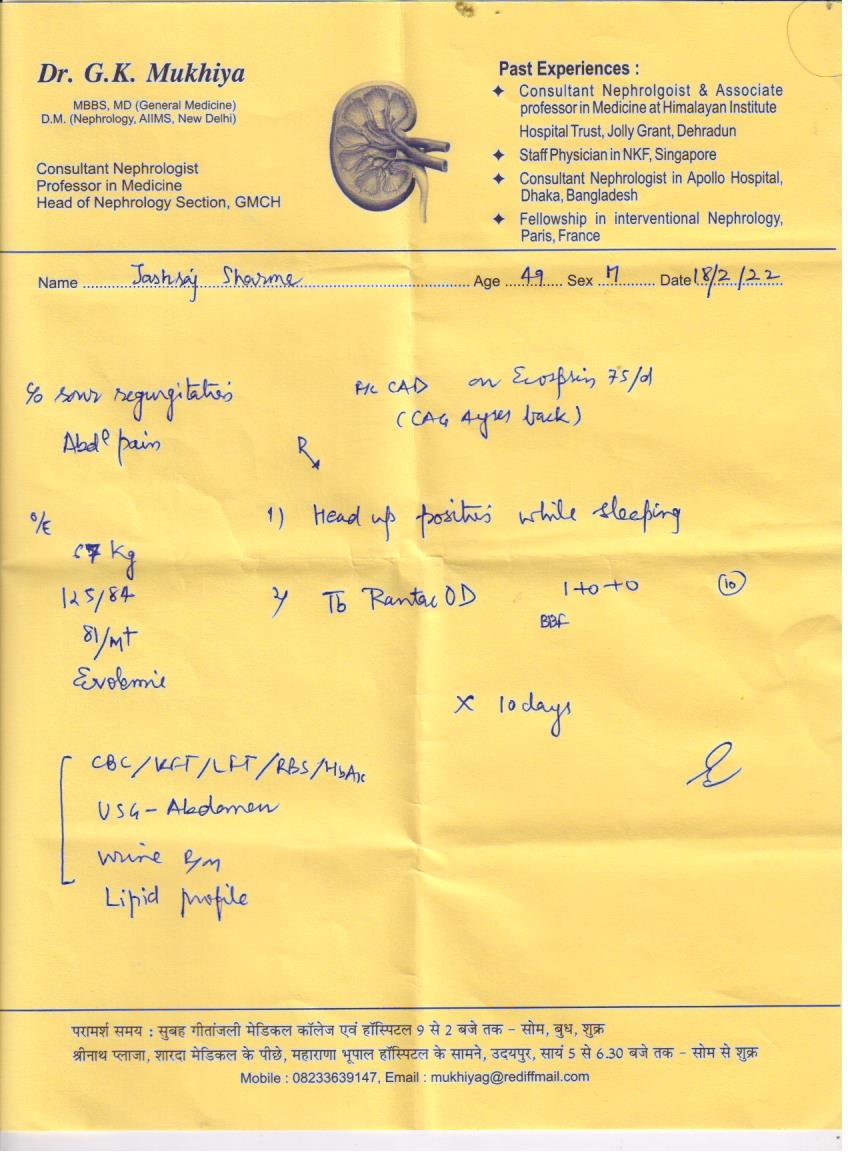 Dr. G.K. Mukhiya
MBBS, MD (General Medicine)
D.M. (Nephrology, AIIMS, New Delhi)
Consultant Nephrologist
Professor in Medicine
Head of Nephrology Section, GMCH
Past Experiences :
✦ Consultant Nephrolgoist & Associate
professor in Medicine at Himalayan Institute
Hospital Trust, Jolly Grant, Dehradun
✦ Staff Physician in NKF, Singapore
✦ Consultant Nephrologist in Apollo Hospital,
Dhaka, Bangladesh
✦ Fellowship in interventional Nephrology,
Paris, France
Name Sharma Age 49 Sex M Date 18/2/22
c/o sour regurgitation
Abd pain
CAD on Ecosprin 75/d
(CAG 4yrs back)
R
o/E
67 Kg
125/84
81/mt
1) Head up position while sleeping
2) Tb Rantac OD 1+0+0 (10)
BBF
x 10 days
CBC/KFT/LFT/RBS/HbA1c
USG - Abdomen
Urine R/M
Lipid profile
परामर्श समय : सुबह गीतांजली मेडिकल कॉलेज एवं हॉस्पिटल 9 से 2 बजे तक - सोम, बुध, शुक्र
श्रीनाथ प्लाजा, शारदा मेडिकल के पीछे, महाराणा भूपाल हॉस्पिटल के सामने, उदयपुर, सायं 5 से 6.30 बजे तक - सोम से शुक्र
Mobile : 08233639147, Email : mukhiyag@rediffmail.com